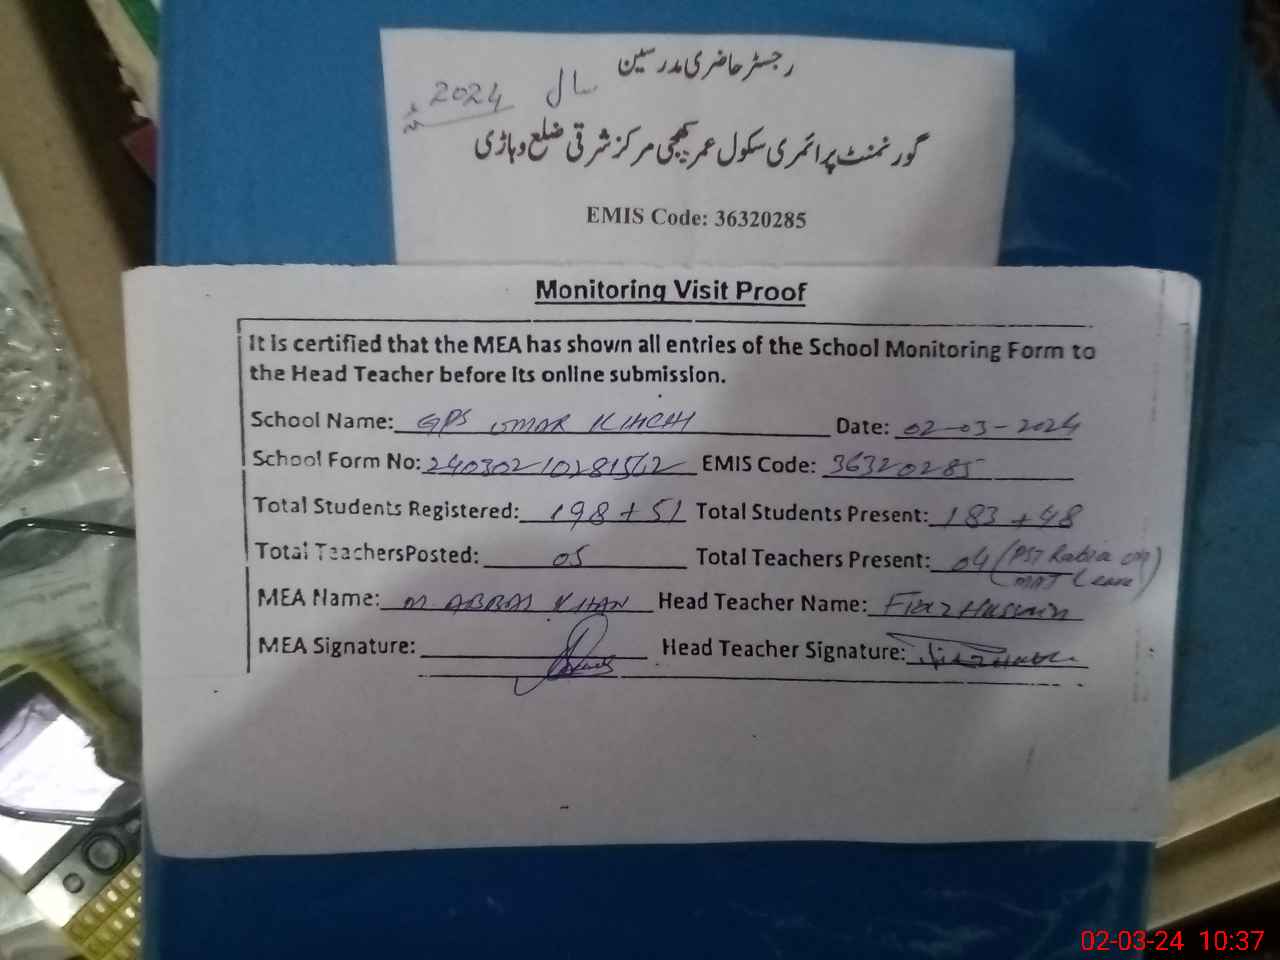 رجسٹر حاضری مدرسین
سال 2024ء
گورنمنٹ پرائمری سکول عمر کھچی مرکز شرقی ضلع وہاڑی
EMIS Code: 36320285
Monitoring Visit Proof
It is certified that the MEA has shown all entries of the School Monitoring Form to
the Head Teacher before its online submission.
School Name: GPS UMAR KHICHI Date: 02-03-2024
School Form No: 24030210281562 EMIS Code: 36320285
Total Students Registered: 198 + 51 Total Students Present: 183 + 48
Total TeachersPosted: 05 Total Teachers Present: 04 (PST Rabia on
MAT Leave)
MEA Name: M ABBAS KHAN Head Teacher Name: Fiaz Hussain
MEA Signature: Head Teacher Signature:
02-03-24 10:37